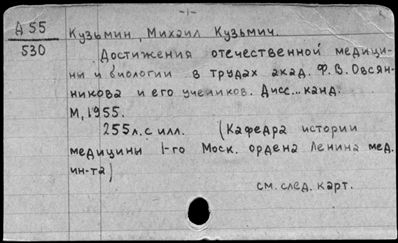 -1-
А 55
530
Кузьмин, Михаил Кузьмич.
Достижения отечественной медици-
ны и биологии в трудах акад. Ф.В.Овсян-
никова и его учеников. Дисс...канд.
М,1955.
255л.с илл. (Кафедра истории
медицины 1-го Моск. ордена Ленина мед.
ин-та)
см. след. карт.